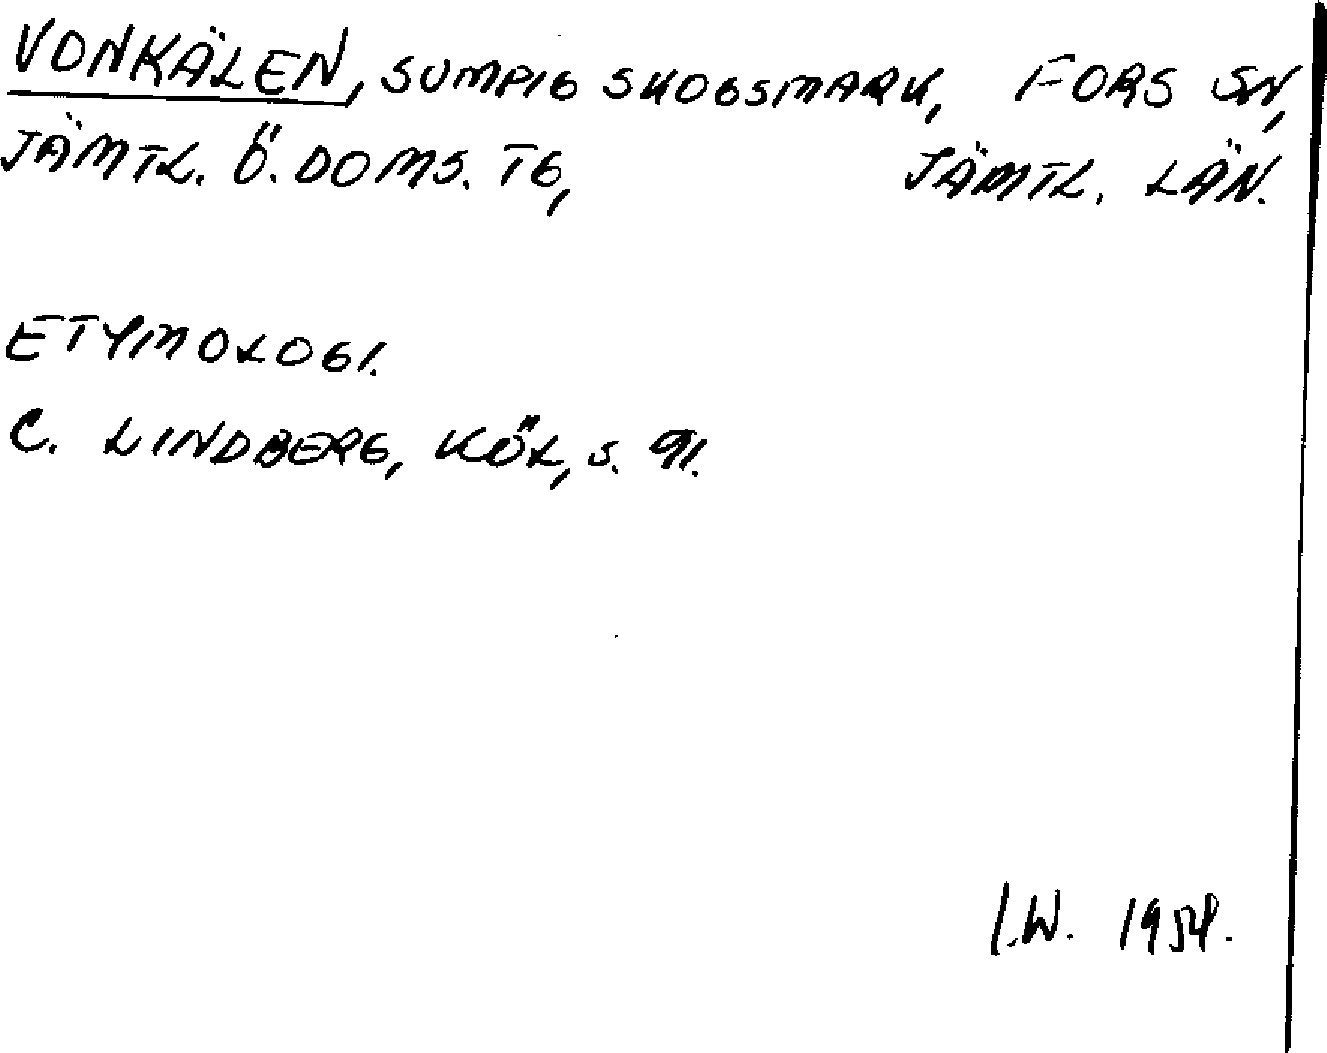 VONKÄLEN, SUMPIG SKOGSMARK, FORS SN,
JÄMTL. Ö. DOMS. TG, JÄMTL. LÄN.
ETYMOLOGI.
C. LINDBERG, KÖL, S. 91.
I.W. 1954.